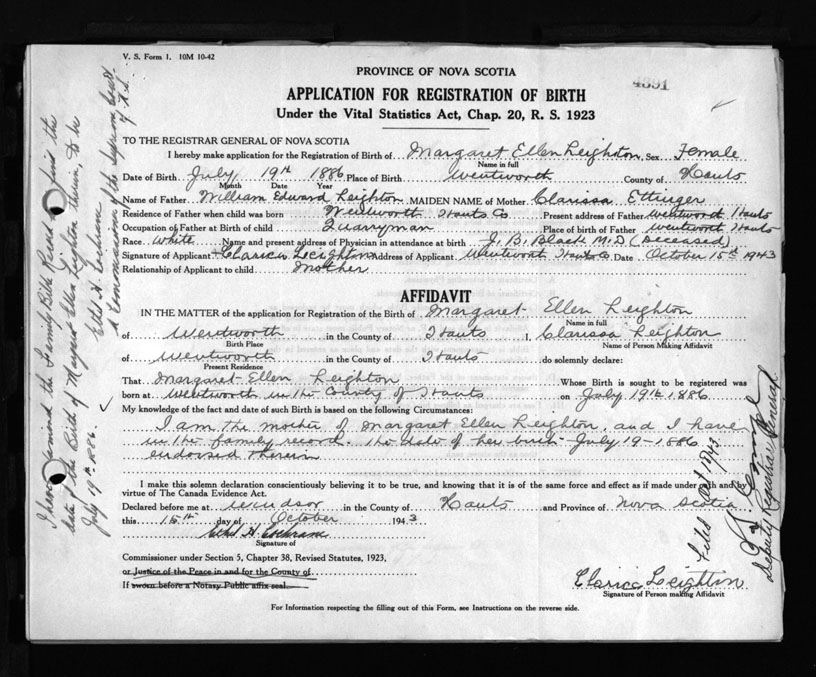 V. S. Form 1. 10M 10-42
4391
PROVINCE OF NOVA SCOTIA
APPLICATION FOR REGISTRATION OF BIRTH
Under the Vital Statistics Act, Chap. 20, R. S. 1923
TO THE REGISTRAR GENERAL OF NOVA SCOTIA
I hereby make application for the Registration of Birth of Margaret Ellen Leighton Sex Female
Name in full
Date of Birth July 19th 1886 Place of Birth Wentworth County of Hants
Month Date Year
Name of Father William Edward Leighton MAIDEN NAME of Mother Clarissa Ettinger
Residence of Father when child was born Wentworth Hants Co Present address of Father Wentworth Hants
Occupation of Father at Birth of child Quarryman Place of birth of Father Wentworth Hants
Race White Name and present address of Physician in attendance at birth J. B. Black M.D (Deceased)
Signature of Applicant Clarica Leighton Address of Applicant Wentworth Hants Co. Date October 15th 1943
Relationship of Applicant to child Mother
AFFIDAVIT
IN THE MATTER of the application for Registration of the Birth of Margaret Ellen Leighton
Name in full
of Wentworth in the County of Hants I, Clarissa Leighton
Birth Place Name of Person Making Affidavit
of Wentworth in the County of Hants do solemnly declare:
Present Residence
That Margaret Ellen Leighton Whose Birth is sought to be registered was
born at Wentworth in the County of Hants on July 19th 1886
My knowledge of the fact and date of such Birth is based on the following Circumstances:
I am the mother of Margaret Ellen Leighton, and I have
in the family record the date of her birth July 19-1886
endorsed therein
I make this solemn declaration conscientiously believing it to be true, and knowing that it is of the same force and effect as if made under oath and by
virtue of The Canada Evidence Act.
Declared before me at Windsor in the County of Hants and Province of Nova Scotia
this 15th day of October 1943
Ethel H. Cochrane
Signature of
Commissioner under Section 5, Chapter 38, Revised Statutes, 1923,
or Justice of the Peace in and for the County of
If sworn before a Notary Public affix seal
Clarica Leightton
Signature of Person making Affidavit
For Information respecting the filling out of this Form, see Instructions on the reverse side.
I have examined the Family Bible Record find the
date of the Birth of Margaret Ellen Leighton therein, to be
July 19th 1886.
Ethel H. Cochrane
A Commissioner of the Supreme Court
of N.S.
Filed Oct 1943
Deputy Registrar General